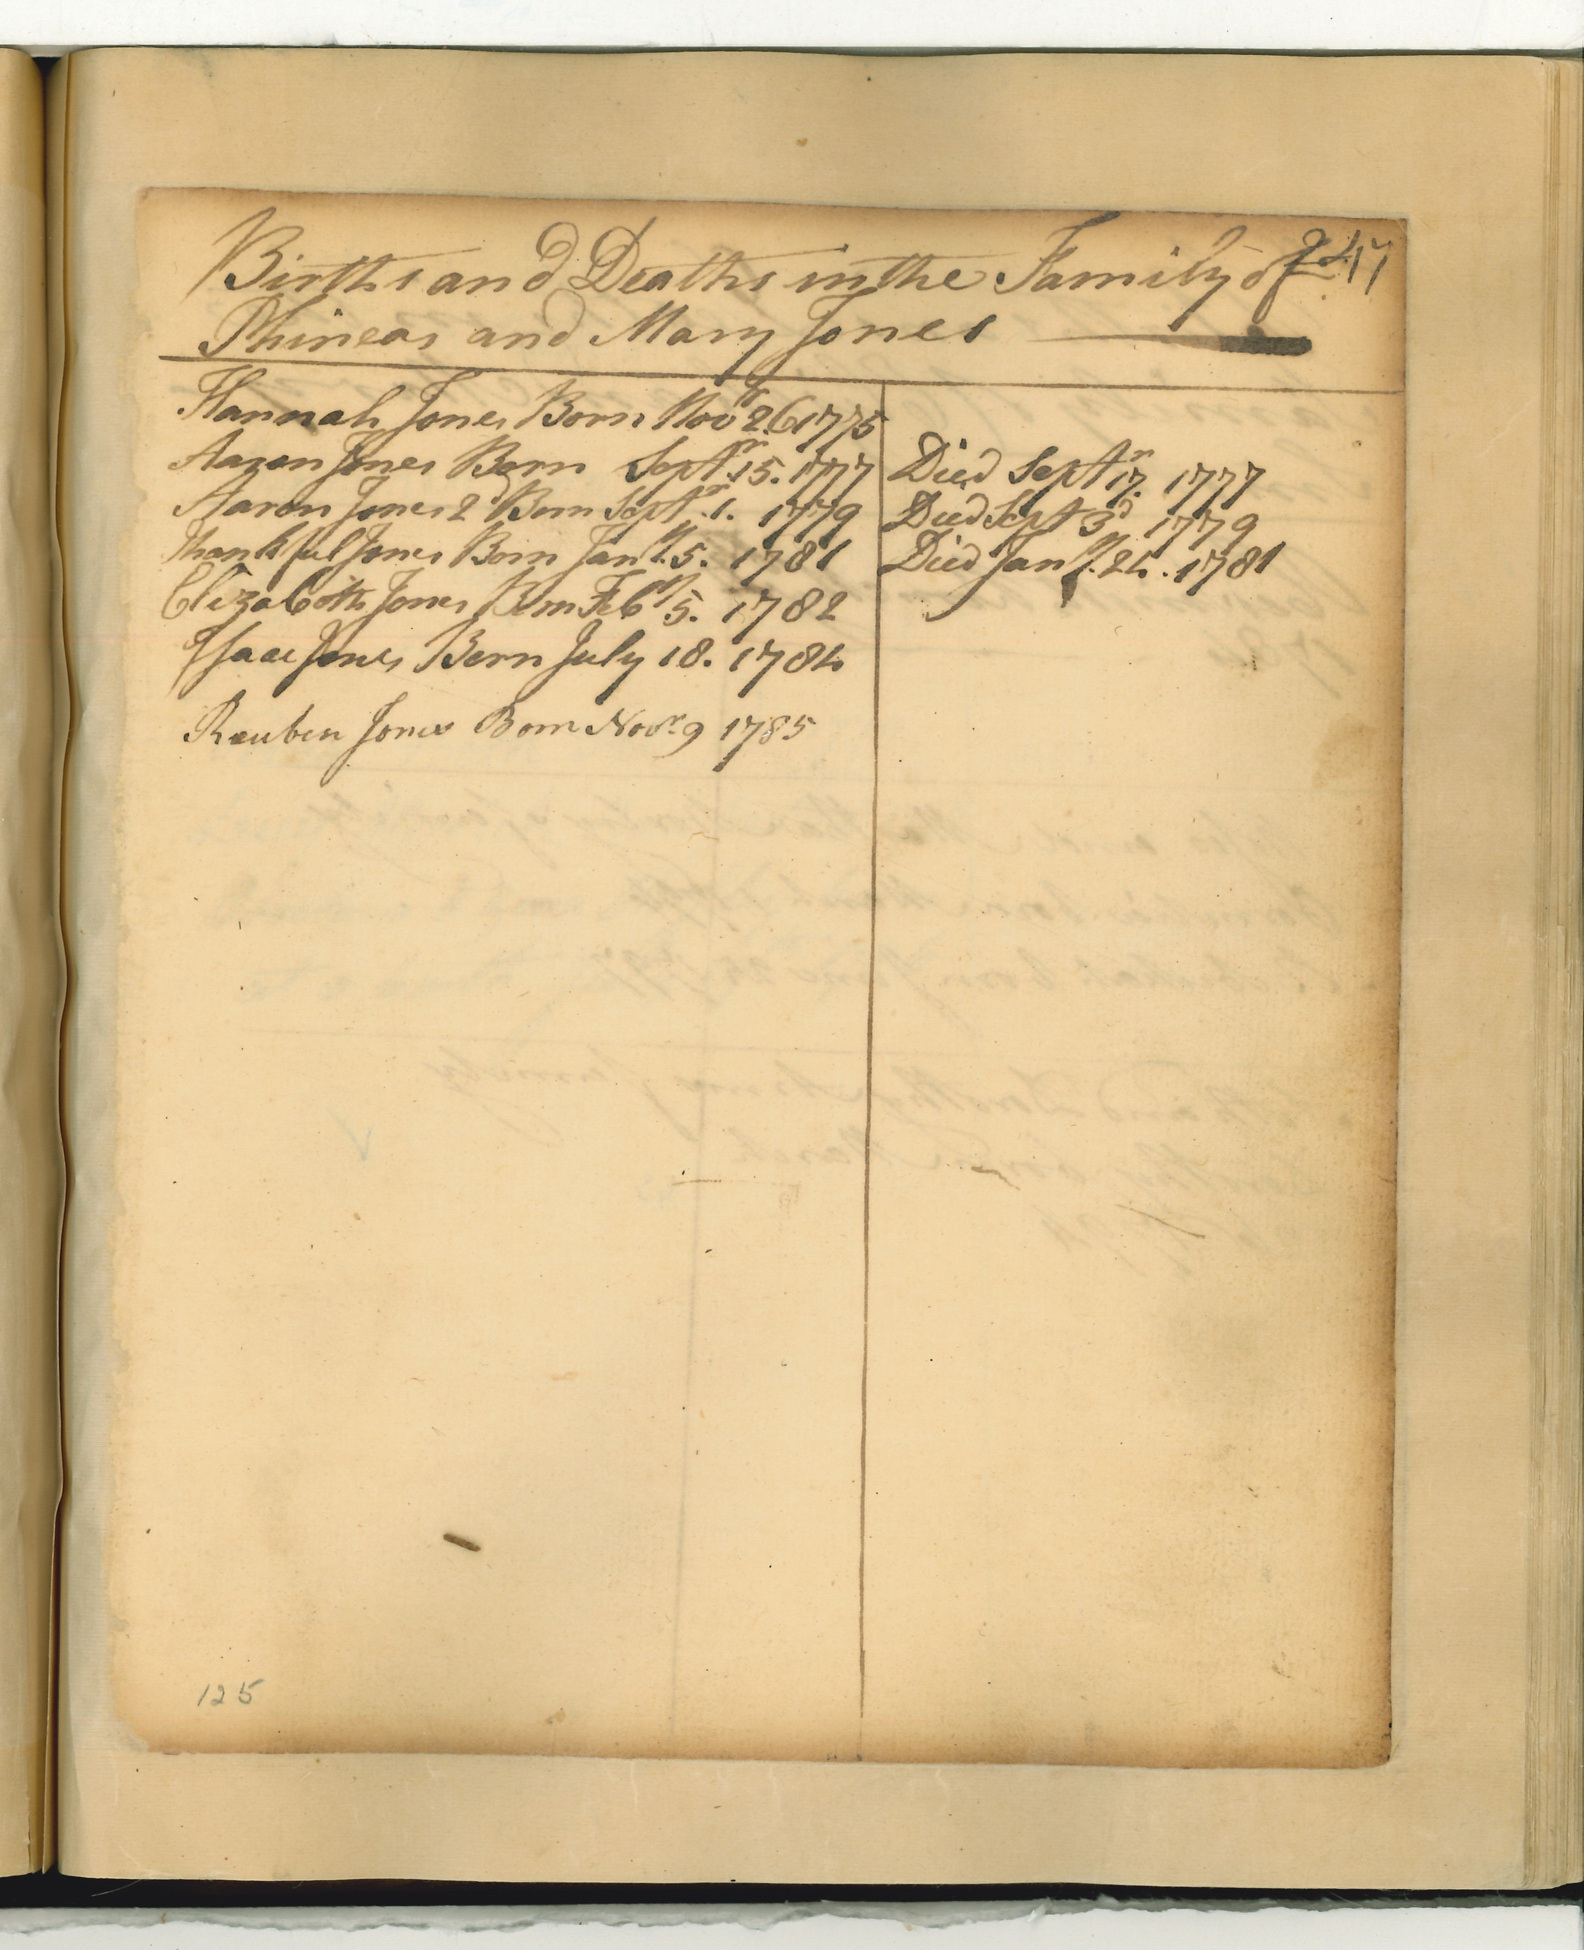 Births and Deaths in the Family of 247
Phineas and Mary Jones
Hannah Jones Born Novr 26 1775
Aaron Jones Born Septr. 15. 1777 Died Septr. 17. 1777
Aaron Jones 2d Born Septr. 1. 1779 Died Sept 3d 1779
Thankful Jones Born Jany. 5. 1781 Died Jany. 24. 1781
Elizabeth Jones Born Feby 5. 1782
Isaac Jones Born July 18. 1784
Reuben Jones Born Novr. 9 1785
125